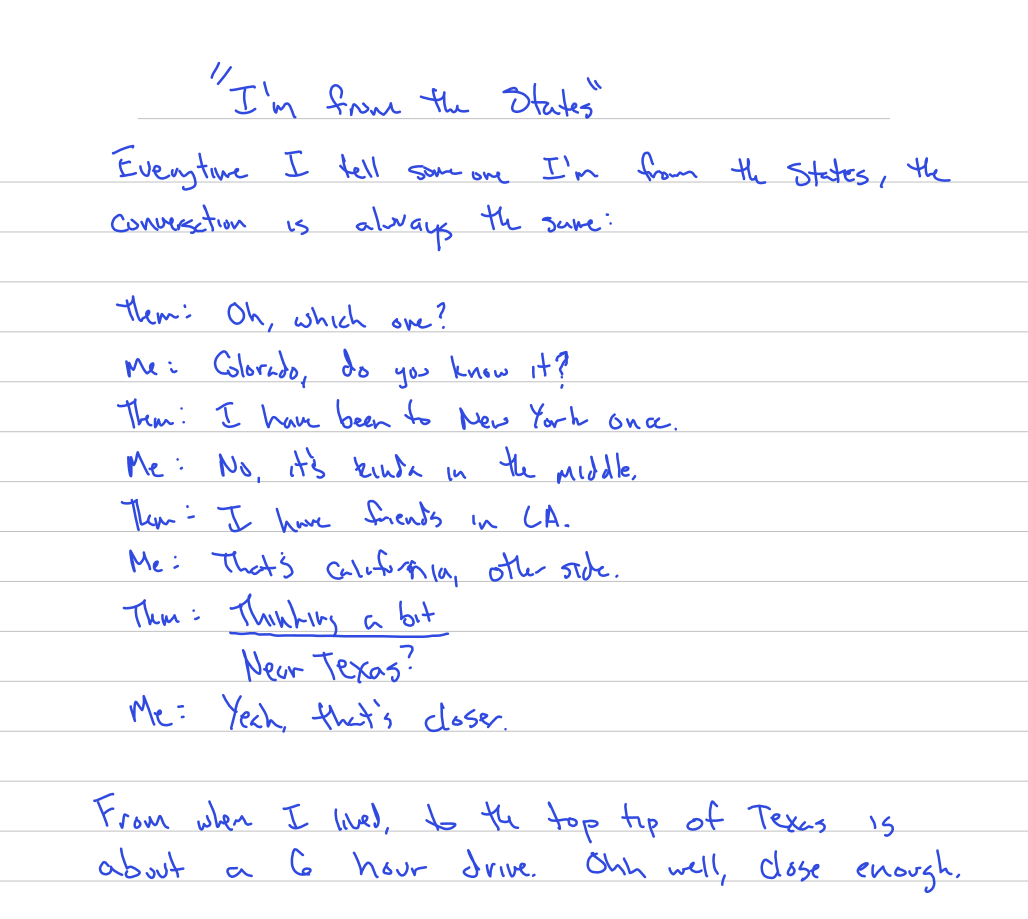 "I'm from the States"
Everytime I tell someone I'm from the States, the
conversation is always the same:
Them: Oh, which one?
Me: Colorado, do you know it?
Them: I have been to New York once.
Me: No, it's kinda in the middle.
Them: I have friends in LA.
Me: That's California, other side.
Them: Thinking a bit
Near Texas?
Me: Yeah, that's closer.
From when I lived, to the top tip of Texas is
about a 6 hour drive. Ohh well, close enough.